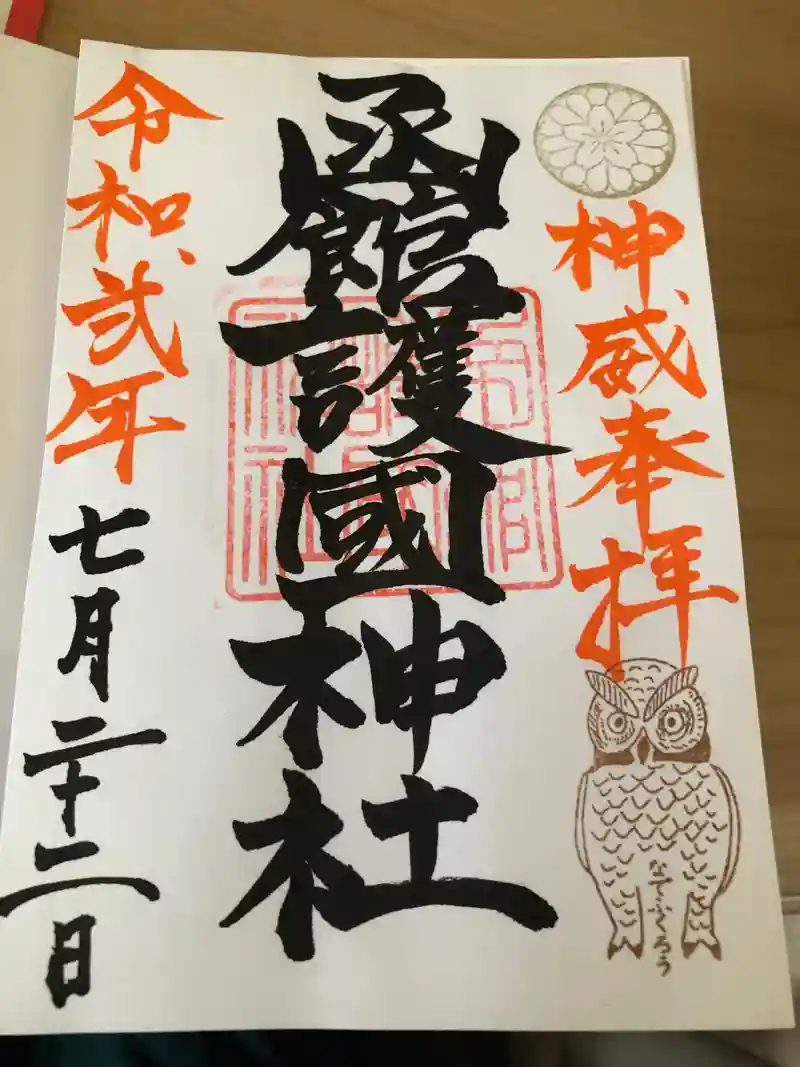 神威奉拝
なでふくろう
函館護國神社
令和弐年
七月二十二日